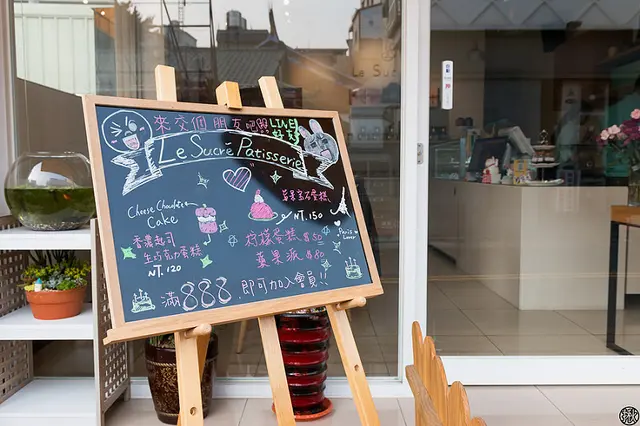 來交個朋友吧
LINE
好友
Le Sucré Patisserie
Cheese Chocolate
Cake
香濃起司
生巧克力蛋糕
NT.120
NT.150
檸檬蛋糕 $80
蘋果派 $80
Paris
Lover
滿888即可加入會員!!
Le Sucré